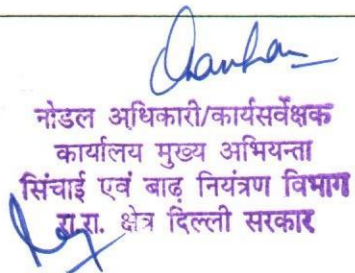 नोडल अधिकारी/कार्यसर्वेक्षक
कार्यालय मुख्य अभियन्ता
सिंचाई एवं बाढ़ नियंत्रण विभाग
रा.रा. क्षेत्र दिल्ली सरकार